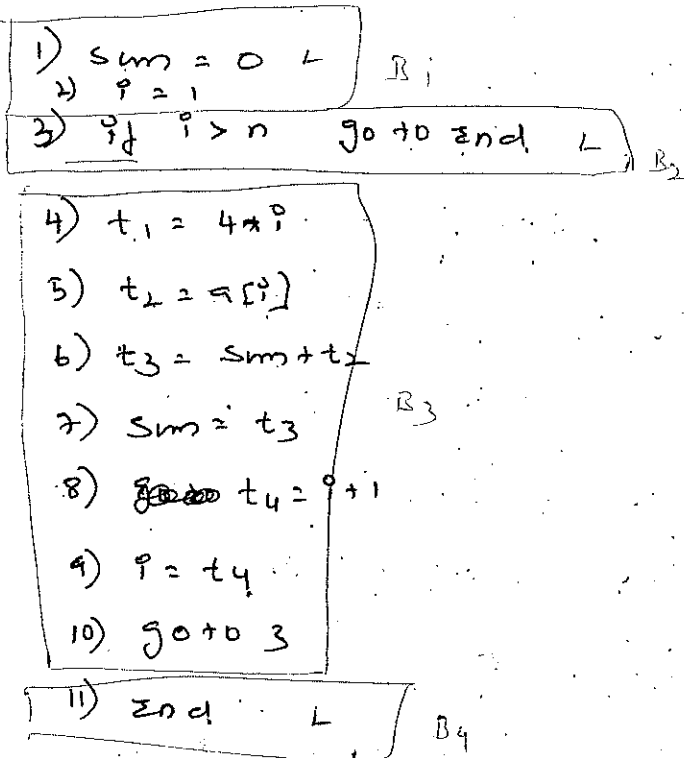 1) sum = 0 L
2) i = 1 B1
3) if i > n goto End L B2
4) t1 = 4 * i
5) t2 = a[i]
6) t3 = sum + t2
7) sum = t3 B3
8) t4 = i + 1
9) i = t4
10) goto 3
11) End L B4